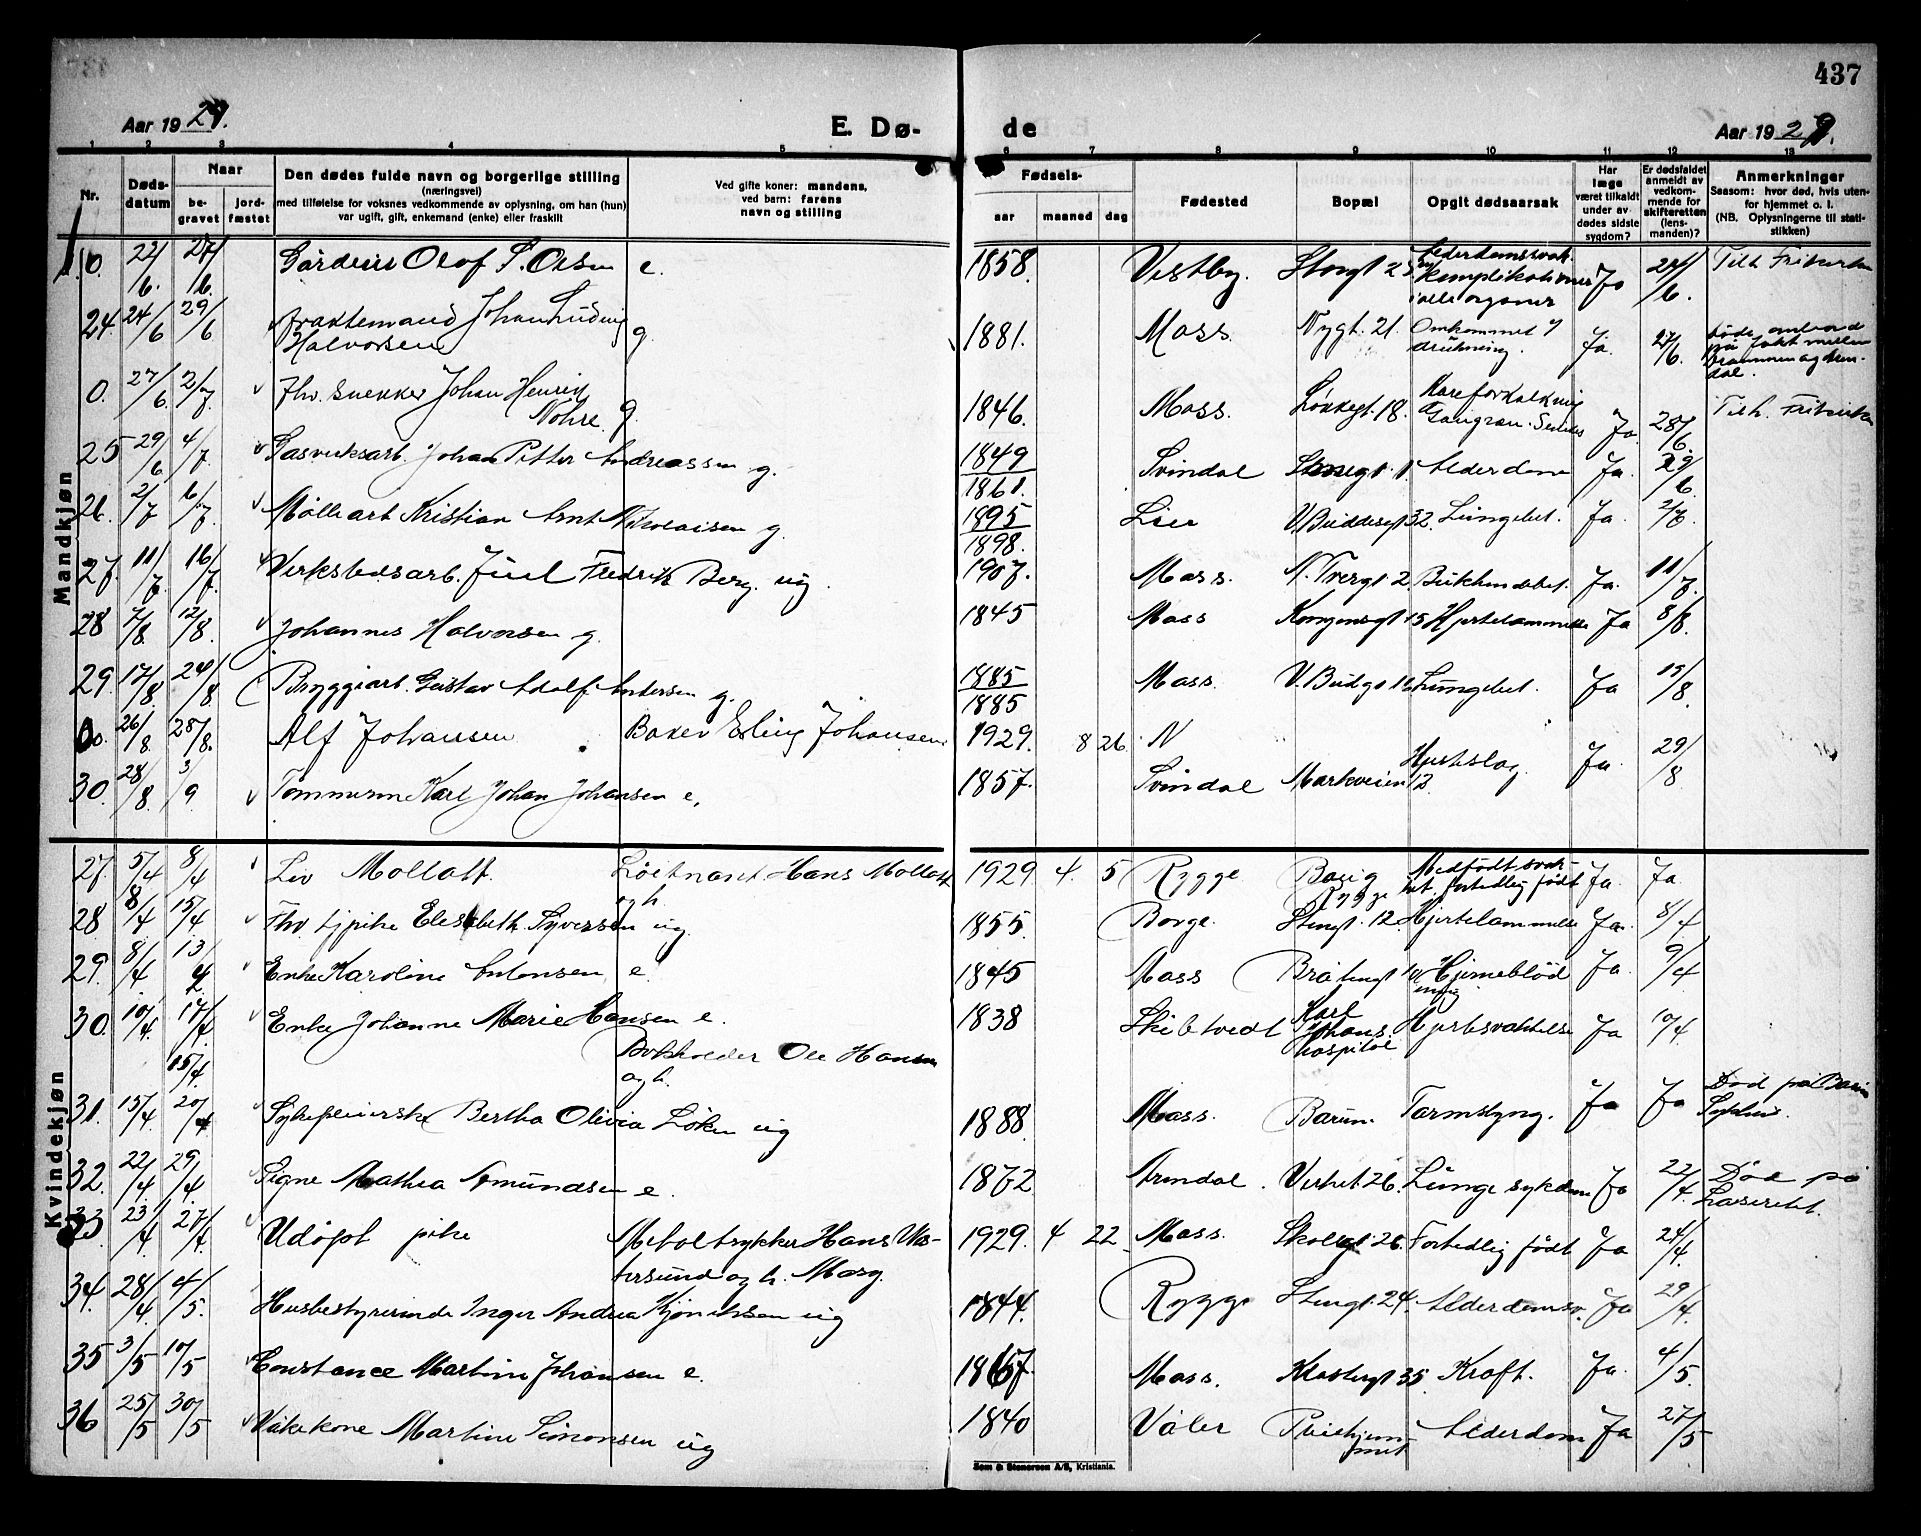 437
Aar 1929.
E. Dø-
de
Aar 1929.
1 2 3 4 5 6 7 8 9 10 11 12 13
Nr.
Døds-
datum
Naar
be-
gravet
jord-
fæstet
Den dødes fulde navn og borgerlige stilling
(næringsvei)
med tilføielse for voksnes vedkommende av oplysning, om han (hun)
var ugift, gift, enkemand (enke) eller fraskilt
Ved gifte koner: mandens,
ved barn: farens
navn og stilling
Fødsels-
aar maaned dag
Fødested
Bopæl
Opgit dødsaarsak
Har
læge
været tilkaldt
under av
dødes sidste
sygdom?
Er dødsfaldet
anmeldt av
vedkom-
mende for
skifteretten
(lens-
manden)?
Anmerkninger
Seasom: hvor død, hvis uten-
for hjemmet o. l.
(NB. Oplysningerne til stati-
stikken)
Mandkjøn
0. 22/6. 27/6 Olof S. Olsen e. 1858. Vestby. Storgt 25 Alderdomssvak. komplikationer i alle organer Ja 24/6. Tilh. Frikirken
24. 24/6 29/6 Fraktemand Johan Ludvig Halvorsen g. 1881. Moss. Nygt. 21. Omkommet v/ drukning. Ja. 27/6. Døde ombord på Jakt mellem Drammen og
0. 27/6. 2/7. Fhv. snekker Johan Henrik Nohre. g. 1846. Moss. Løkkegt. 18. Kareforkalkning Gangræn. Senilis Ja 28/6. Tilh. Frikirken
25 29/6 4/7. Gasverksarb. Johan Petter Andreassen g. 1849 1861. Svindal Alderdom Ja. 29/6.
26. 2/7 6/7. Møllearb Kristian Arnt Nikolaisen g. 1895 1898. Lier V. Buddesgt 32. Lungebet. Ja. 2/7.
27. 11/7 16/7. Verkstedsarb. Juul Fredrik Berg. ug. 1907. Moss. N. Torvgt 2. Bukhindebet. Ja. 11/7.
28 7/8. 12/8. Johannes Halvorsen g. 1845 Moss Kongensgt 15 Hjertelammelse Ja 8/8.
29. 17/8. 20/8 Bryggiarb. Gustav Adolf Andersen g. 1885 1885 Moss. V. Budgt Lungebet. Ja 19/8.
0. 26/8. 28/8. Alf Johansen Baker Erling Johansen. 1929. 8 26. N
30. 28/8. 3/9 Tømmerm Karl Johan Johansen e. 1857. Svindal Markveien 12. Hjertslag Ja. 29/8
Kvindekjøn
27. 5/4 8/4 Liv Mollatt. Løitnant Hans Mollatt og h. 1929 4. 5 Rygge Rygge Medfødt svak- het. fortidlig født Ja. Ja.
28 8/4 15/4. Fhv tjpike Elisabeth Syversen ug. 1855. Borge. Stengt. 12. Hjertelammelse Ja. 8/4
29. 8/4 13/4 Enke Karoline Antonsen e. 1845 Moss Bråtengt Hjerneblød ning Ja. 9/4
30. 10/4. 17/4 Enke Johanne Marie Hansen e. 1838 Skibtvedt Karl Johans hospital Hjertesvakkelse Ja 10/4
15/4. Bokholder Ole Hansen og h.
31. 15/4. 20/4 Sykepleierske Bertha Olivia Løken ug 1888. Moss. Bærum. Tarmslyng. Ja Ja Død på Bærum Sykhus.
32. 22/4 29/4. Signe Mathea Amundsen e. 1872 Arndal. Verket 26. Lunge sykdom Ja 22/4. Død på Lasarettet.
33. 23/4. 27/4 Udøpt pike Mebeltrykker Hans tersund og h. Marg. 1929. 4 22. Moss. Skolegt. 26. Fortidlig født Ja 24/4.
34. 28/4 4/5. Husbestyrerinde Inger Andrea ug 1844. Rygge Stengt. 24. Alderdomsv. Ja 29/4.
35 3/5 10/5 Constance Martine Johansen e. 1867. Moss. Klostergt 35. Kræft. Ja. 4/5.
36 25/5 30/5 Våkekone Martine Simonsen ug 1840 Våler Pleiehjem- met Alderdom Ja 27/5
Sem & Stenersen A/S, Kristiania.